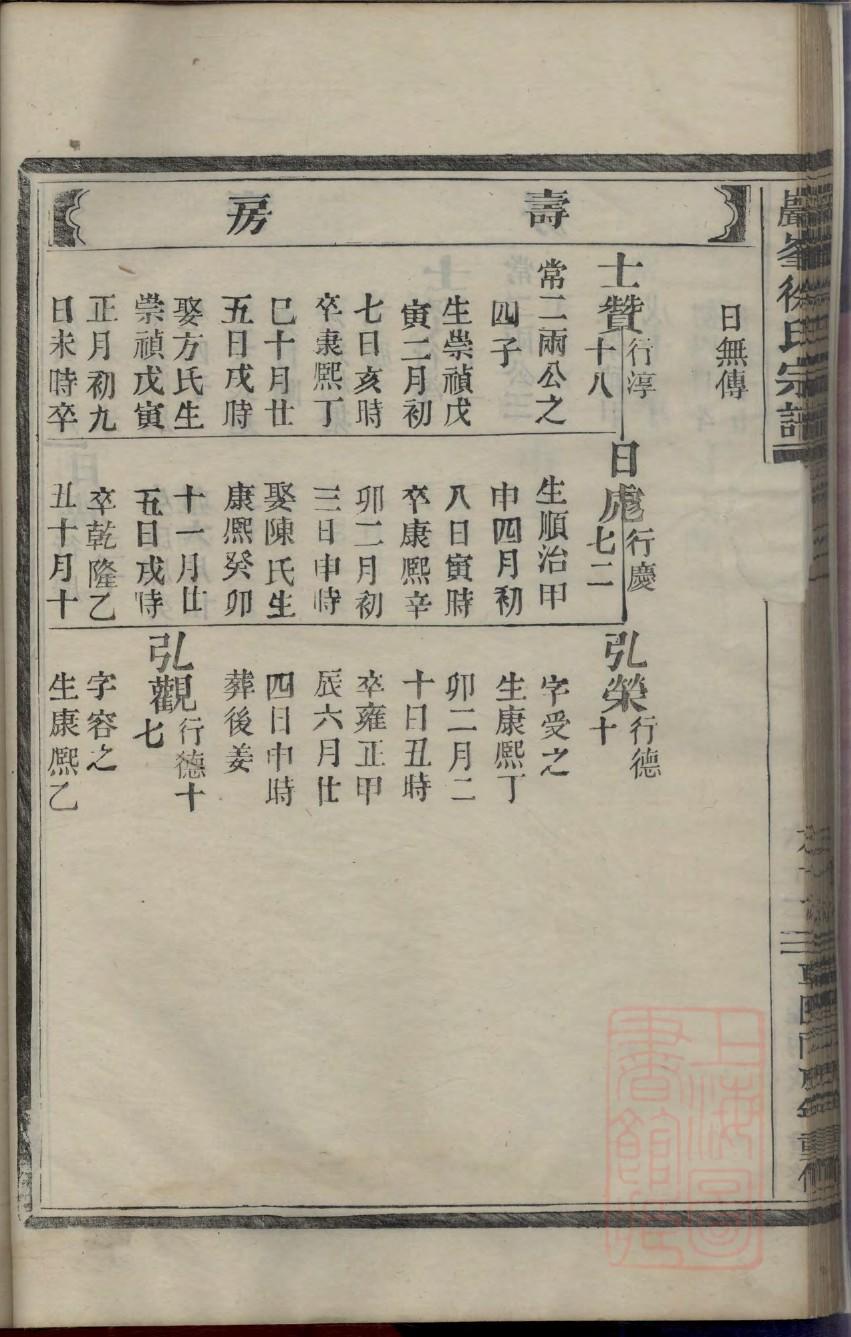 壽房
日無傳
士贊行淳十八
常二兩公之
四子
生崇禎戊
寅二月初
七日亥時
卒康熙丁
巳十月廿
五日戌時
娶方氏生
崇禎戊寅
正月初九
日未時卒
日彪行慶七二
生順治甲
申四月初
八日寅時
卒康熙辛
卯二月初
三日申時
娶陳氏生
康熙癸卯
十一月廿
五日戌時
卒乾隆乙
丑十月十
弘榮行德十
字受之
生康熙丁
卯二月二
十日丑時
卒雍正甲
辰六月廿
四日申時
葬後姜
弘觀行德十七
字容之
生康熙乙
巖峯徐氏宗譜
重修
上海圖書館藏